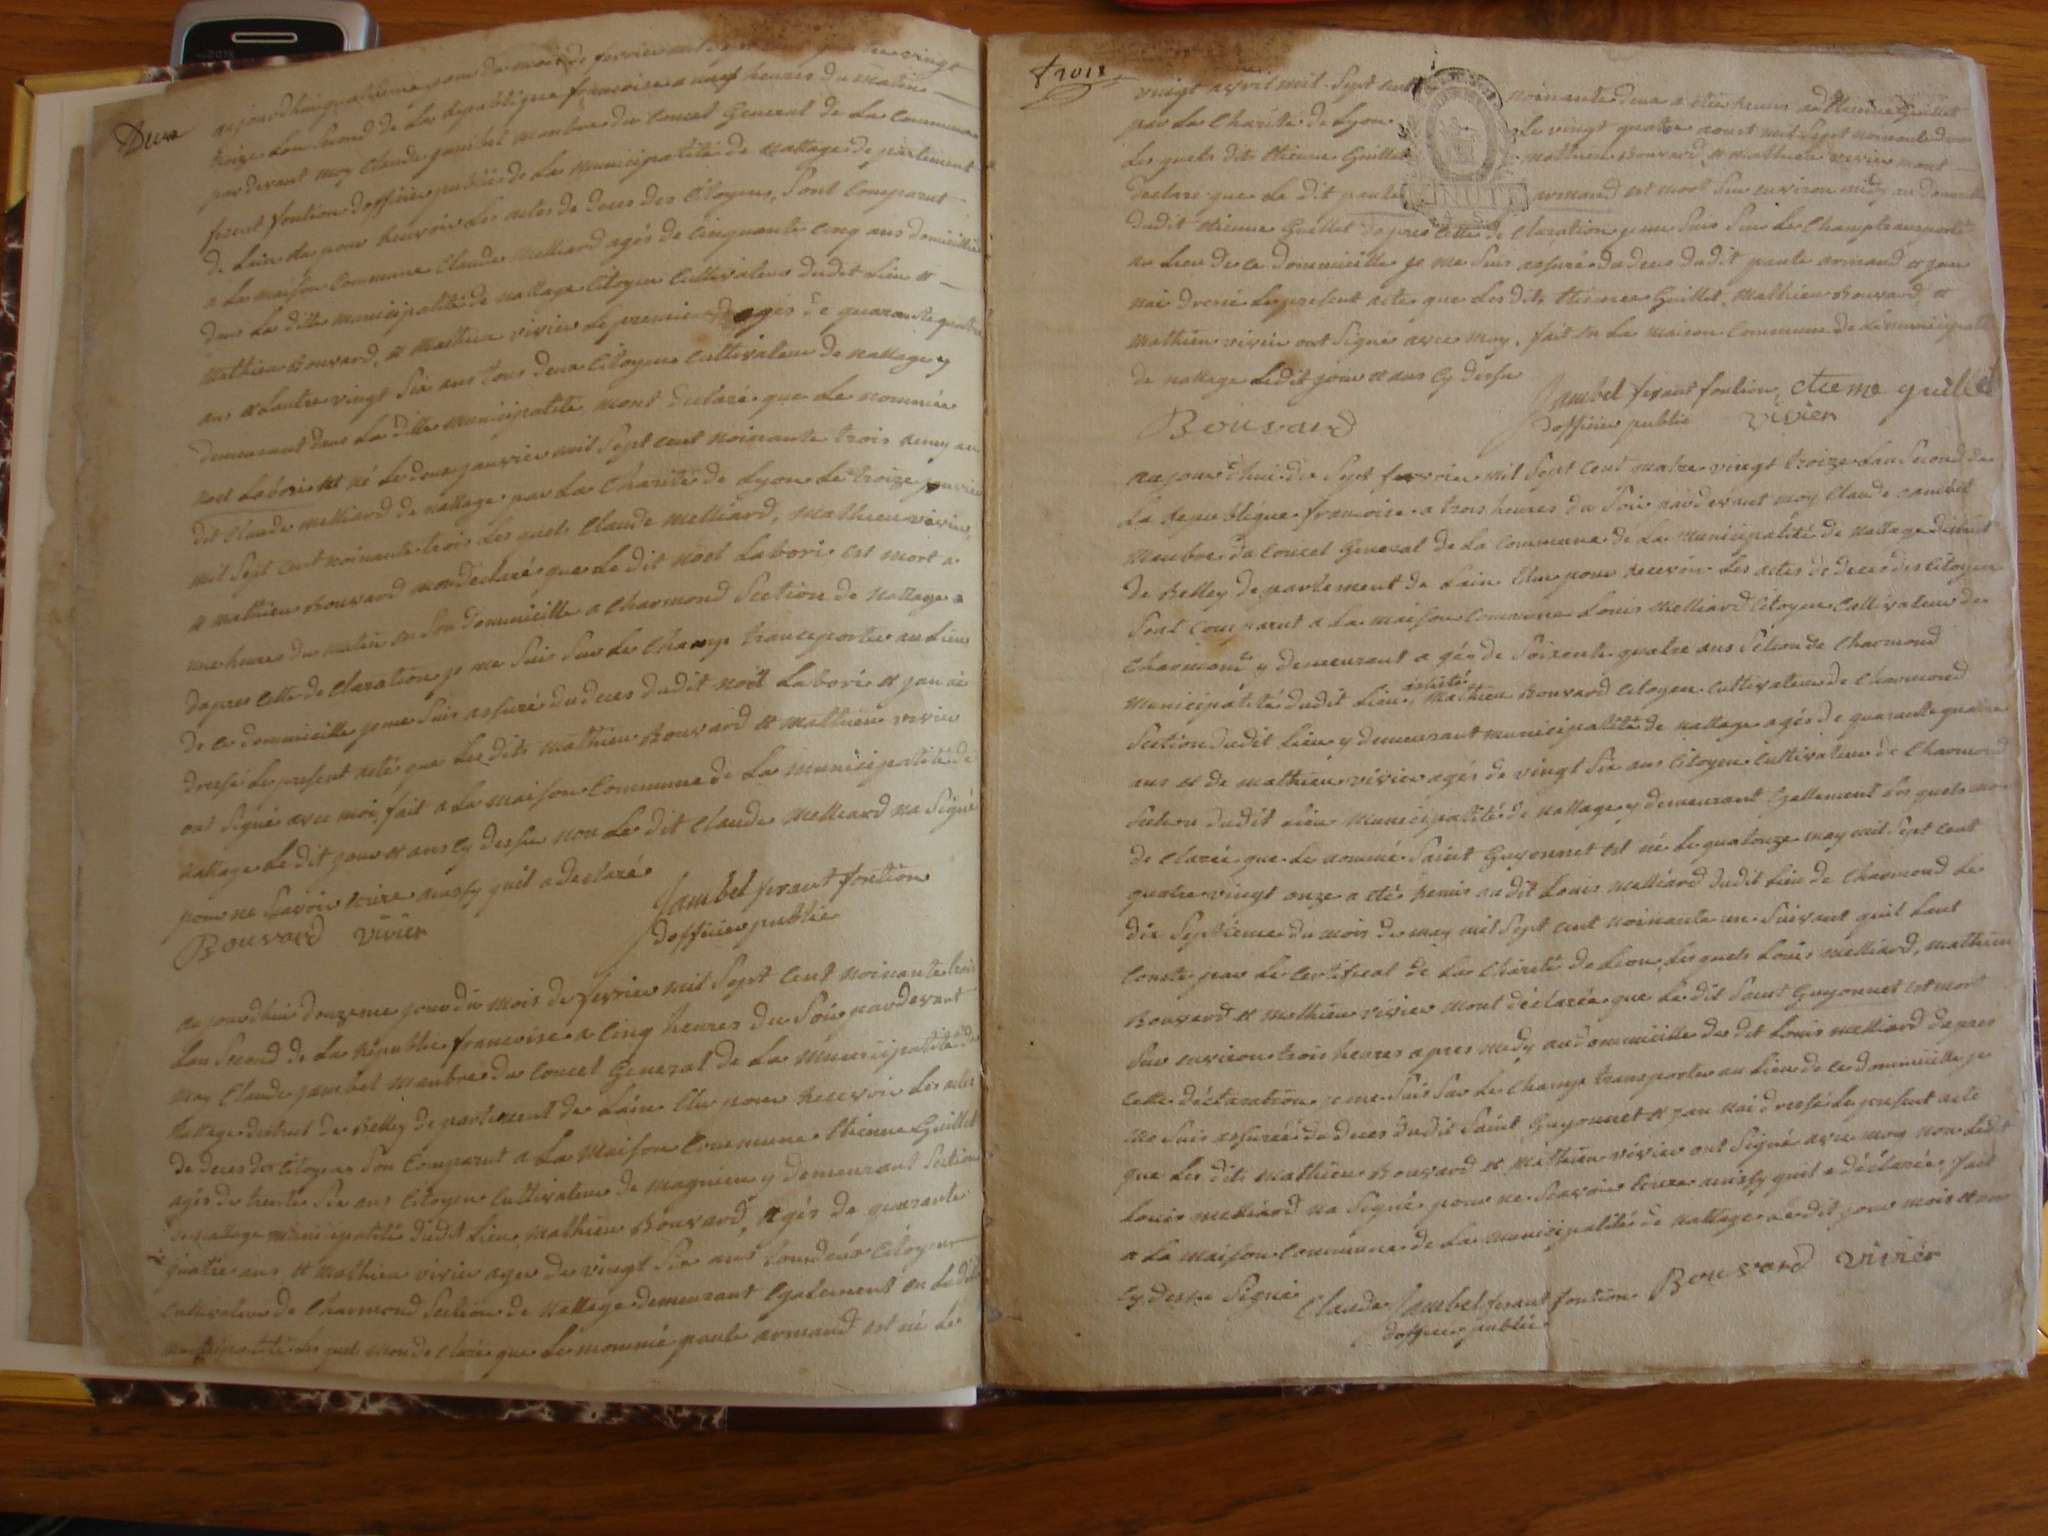 Deux
aujourdhuy quatrieme jour du mois de fevrier mil sept cent quatre vingt
treize Lan second de La Republique francoise a neuf heures du matin
par devant moy Claude jambel manbre du Concel General de La Commune
fesant fontion dofficier public de La municipalité de nattage departement
de Lain elu pour recevoir Les actes de deces des Citoyens, sont Comparut
a La maison Commune Claude Melliard agés de Cinquante Cinq ans domicillié
dans La ditte municipalité de nattage Citoyen Cultivateur dudit Lieu et
Mathieu Bouvard, et Mathieu vivier Le premier agés de quarante quatre
ans et Lautre vingt six ans tous deux Citoyen Cultivateur de nattage y
demeurant dans La ditte municipalite, mont declaré que Le nommée
noel Labori est né Le douze janvier mil sept cent noinante trois remy au
dit Claude Melliard de nattage par La Charité de Lyon Le treize janvier
mil sept cent noinante trois Les quels Claude Melliard, Mathieu vivier,
et Mathieu Bouvard mon declaré que Le dit noël Labori est mort a
une heures du matin en son dommicille a Charmond section de nattage
dapres Cette declaration je me suis sur Le Champ transporter au Lieu
de Ce dommicille je me suis assuré du deces dudit noël Labori et jan ai
dressé Le present acte que Les dits Mathieu Bouvard et Mathieu vivier
ont signé avec moi, fait a La maison Commune de La municipalité de
nattage Le dit jour et ans Cy dessu non Le dit Claude Melliard na signé
pour ne savoir ecrire ainsy quil a declaré
Jambel fesant fontion
Bouvard vivier dofficier public
aujourdhui douzeme jour du mois de fevrier mil sept cent noinante trois
Lan second de La Republic francoise a Cinq heures du soir pardevant
moy Claude jambel manbre du Concel General de La municipalité de
nattage district de Belley departement de Lain Elu pour recevoir Les actes
de deces des Citoyens son Comparut a La maison Commune Etienne Guillet
agés de trente six ans Citoyen Cultivateur de magnieu y demeurant section
de nattage municipalité dudit Lieu, Mathieu Bouvard, agés de quarante
quatre ans et Mathieu vivier agés de vingt six ans tous deux Citoyen
Cultivateur de Charmond section de nattage demeurant Egalement en Laditte
municipalité Les quels mon declaré que Le nommé paule armand est né Le
trois
vingt avril mil sept cent noinante deux a etée remis ad Etienne Guillet
par La Charité de Lyon Le vingt quatre aout mil sept noinante deux
Les quels dits Etienne Guillet Mathieu Bouvard et Mathieu vivier mont
declaré que Le dit paule armand est mort sur environ midy au dommicille
dudit Etienne Guillet dapres Cette declaration je me suis sur Le Champ transporté
au Lieu de Ce dommicille je me suis assuré du deces dudit paule armand et jan
nai dressé Le present acte que Les dits Etienne Guillet, Mathieu Bouvard, et
Mathieu vivier ont signé avec moy, fait en La maison Commune de La municipalité
de nattage Ledit jour et ans Cy dessu
Jambel fesant fontion etienne guillet
Bouvard dofficier public vivier
aujourdhui dix sept fevrier mil sept cent quatre vingt treize Lan second de
La Republique francoise a trois heures du soir pardevant moy Claude jambel
Manbre du Concel General de La Commune de La municipalité de nattage district
de Belley departement de Lain Elu pour recevoir Les actes de deces des Citoyen
sont Comparut a La maison Commune Louis Melliard Citoyen Cultivateur de
Charmond y demeurant agés de soixente quatre ans section de Charmond
municipalité dudit Lieu, assisté Mathieu Bouvard Citoyen Cultivateur de Charmond
section dudit Lieu y demeurant municipalité de nattage agés de quarante quatre
ans et de Mathieu vivier agés de vingt six ans Citoyen Cultivateur de Charmond
section dudit Lieu municipalité de nattage y demeurant Egallement Les quels mon
declarée que Le nommé saint Guyonnet est né Le quatorze may mil sept cent
quatre vingt onze a eté remis au dit Louis Melliard dudit Lieu de Charmond Le
dix septieme du mois de may mil sept cent noinante un suivant quil Lant
Conste par Le Certificat de La Charité de Lion, Les quels Louis Melliard, Mathieu
Bouvard et Mathieu vivier mont declarée que Le dit saint Guyonnet est mort
sur environ trois heures apres medy au dommicille du dit Louis Melliard dapres
Cette déclaration je me suis sur Le Champ transporter au Lieu de Ce dommicille je
me suis assurée du deces dudit saint Guyonnet et jan nai dressé Le present acte
que Les dits Mathieu Bouvard et Mathieu vivier ont signé avec moy non Ledit
Louis Melliard na signé pour ne scavoir Ecrire ainsy quil a déclarée, fait
a La maison Commune de La municipalité de nattage Ledit jour mois et an
Cy dessu signé
Claude Jambel fesant fontion Bouvard vivier
dofficier public